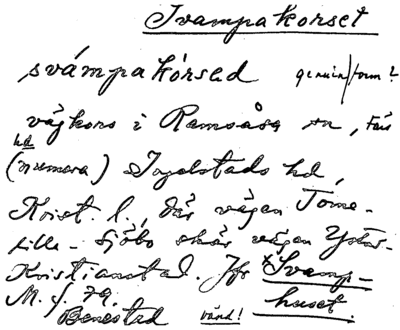 Svampakorset
svámpakòrsəd genuin form?
vägkors i Ramsåsa sn, Färs
hd
(numera) Ingelstads hd,
Krist. l., där vägen Tome-
lilla - Sjöbo skär vägen Ystad-
Kristianstad. Jfr *Svamp-
huset.
M. f. 79.
Benestad vänd!